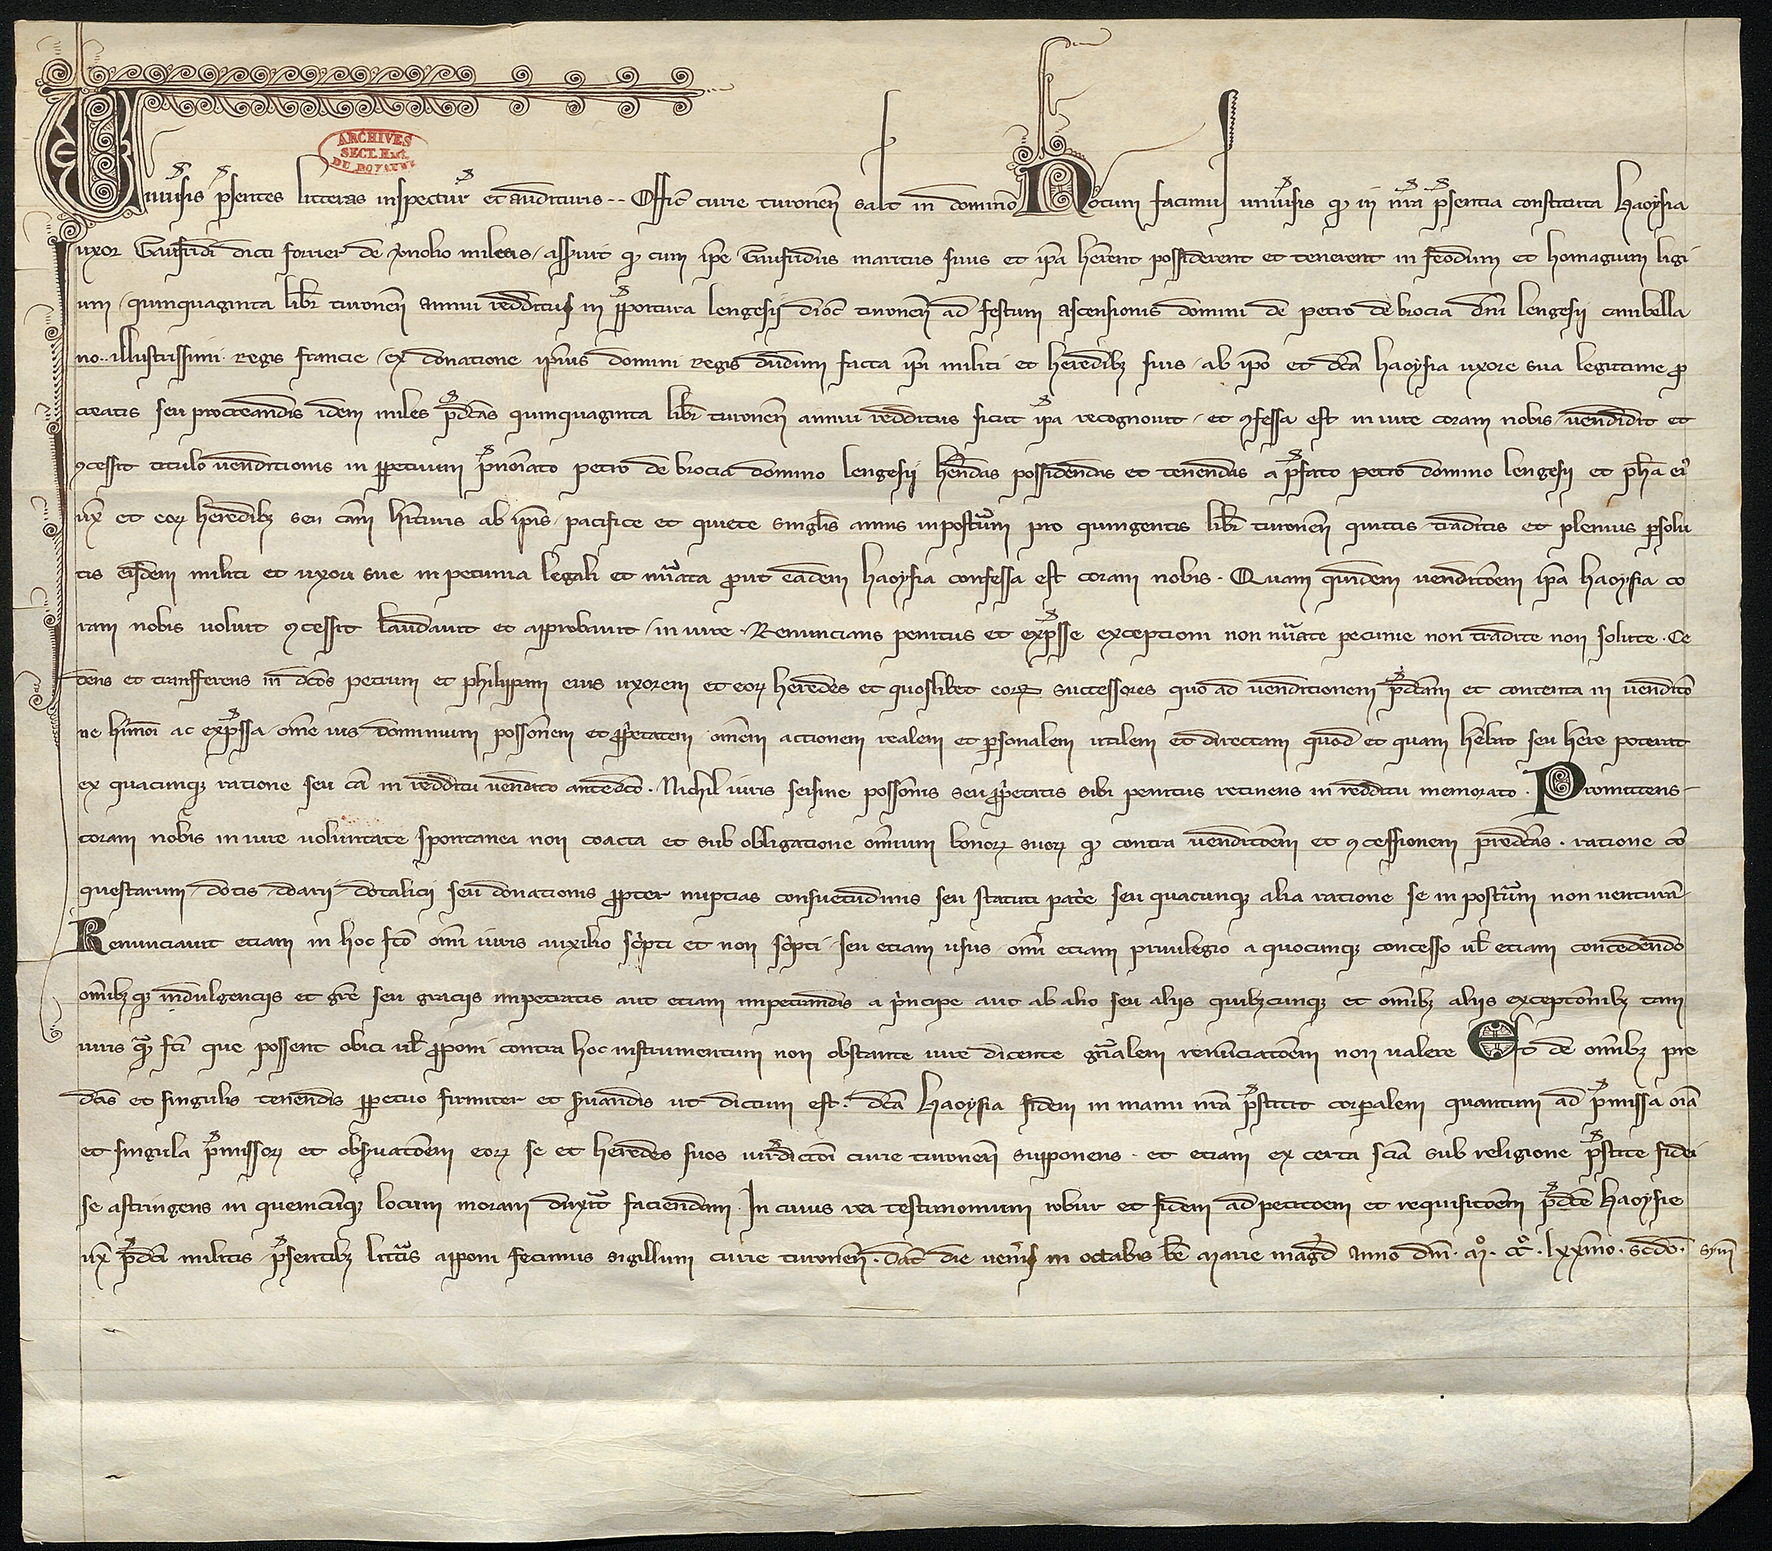 ARCHIVES
SECT. HIST.
DU ROYAUME
Univ̾sis p̾sentes litteras inspectur̾ et audituris ·· Offic̄ curie turonen̄ sal̄t in domino Notum facimus univ̾sis q̄ in nr̄a p̾sentia constituta haoysia
uxor Gaufridi dicti forrer de militis / asseruit q̄ cum ip̄e Gaufridus maritus suus et ip̄a her̄ent possiderent et tenerent in feodum et homagium ligi
um / quinquaginta libr̄ turonen̄ annui redditus in p̾positura lengesij dioc̄ turonen̄ ad festum ascensionis domini de petro de brocia dn̄i lengesij cambella
no ·· illustrissimi regis francie / ex donatione ip̄ius domini regis dudum facta ip̄i militi et heredibꝫ suis / ab ip̄o et dc̄a haoysia uxore sua legitime p̱ro
creatis seu procreandis idem miles p̾dc̄as quinquaginta libr̄ turonen̄ annui redditus sicut ip̄a recognovit / et ꝯfessa est in iure coram nobis / vendidit et
ꝯcessit titulo venditionis in ꝑpetuum p̾no͞iato petro de brocia domino lengesij he̾ndas possidendas et tenendas a p̾fato petro domino lengesij et ph̄a ei᷒
ux̄ et eoꝝ heredibꝫ seu cām hīturis ab ip̄is / pacifice et quiete singlīs annis inpostr̄um pro quingentis libr̄ turonen̄ quittis traditis et plenius ꝑsolu
tis eisdem militi et uxori sue in pecunia legali et nūata ꝓut eadem haoysia confessa est coram nobis · Quam quidem venditōem ip̄a haoysia co
ram nobis voluit ꝯcessit laudavit et approbavit / in iure · Renuncians penitus et exp̾sse exceptioni non nūate pecunie non tradite non solute · Ce
dens et transferens in dc̄os petrum et philippam eius uxorem et eoꝝ heredes et quoslibet eoꝝ successores quo ad venditionem p̾dc̄am et contenta in venditō
ne hīmōi ac exp̾ssa / om̄e ius dominium possōnem et ꝓp̾etatem om̄em actionem realem et ꝑsonalem utilem et directam quod et quam heb̄at seu her̄e poterat
ex quacunqꝫ ratione seu cā in redditu vendito antedc̄o · Nichil iuris seisine possōnis seu ꝓp̾etatis sibi penitus retinens in redditu memorato · Promittens
coram nobis in iure voluntate spontanea non coacta et sub obligatione om̄ium bonoꝝ suoꝝ q̄ contra venditōem et ꝯcessionem predc̄as · ratione cō
questarum / dotis / doarii / dotalicij seu donationis ꝓpter nuptias consuetudinis seu statuti pat̾e seu quacunqꝫ alia ratione se in postr̄um non venturā
Renunciavit etiam in hoc fc̄o om̄i iuris auxilio sc̾pti et non sc̾pti / seu etiam usus / om̄i etiam privilegio a quocunqꝫ concesso ul̄ etiam concedendo
om̄ibꝫqꝫ indulgenciis et gr̄e seu graciis impetratis aut etiam impetrandis a p̾ncipe aut ab alio seu aliis quibꝫcunqꝫ et om̄ibꝫ aliis exceptōnibꝫ tam
iuris qꝫ fc̄i que possent obici ul̄ ꝓponi contra hoc instrumentum non obstante iure dicente gn̄alem renunciatōem non valere Et de om̄ibꝫ pre
dc̄is et singulis tenendis ꝑpetuo firmiter et s̾vandis ut dictum est · dc̄a haoysia fidem in manu nr̄a p̾stitit corꝑalem quantum ad p̾missa om̄ia
et singula p̾missoꝝ et obs̾vatōem eoꝝ se et heredes suos iur̄dictōi curie turonen̄ supponens · et etiam ex certa scīa sub religione p̾stite fidei
se astringens in quemcūqꝫ locum moram duxer̄it faciendam · In cuius rei testimonium robur et fidem ad petitōem et requisitōem p̾dc̄e haoysie
ux̄ p̾dc̄i militis p̾sentibꝫ litt̄is apponi fecimus sigillum curie turonen̄ · Dat̄ die ven̾is in octabis be̅ marie magd̄ anno dn̄i · mͦ · ccͦ · lxx̄mo · scd̄o ·